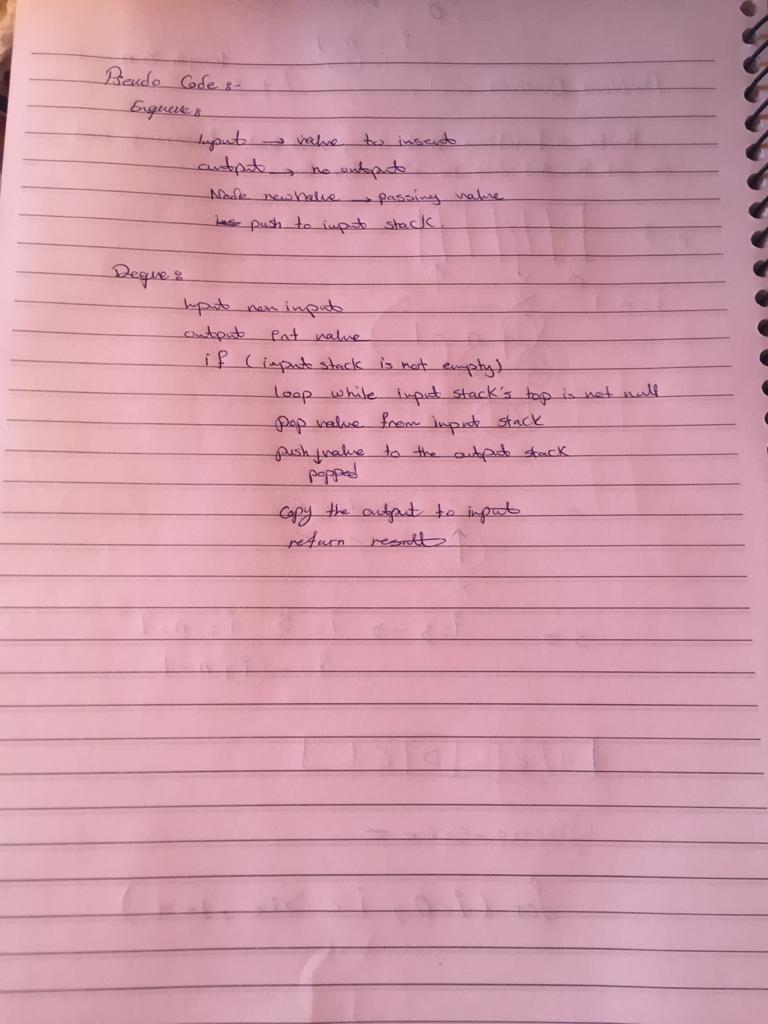 Pseudo Code :-
Enqueue :
Input → value to insert
output → no output
Node newValue → passing value
push to input stack.
Deque :
Input non input
output value
if (input stack is not empty)
loop while input stack's top is not null
pop value from input stack
push value to the output stack
popped
copy the output to input
return result